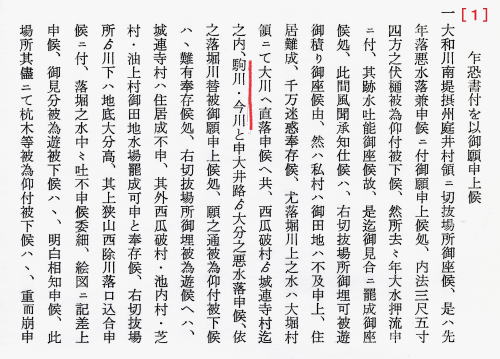 [1]
乍恐書付を以御願申上候
一大和川南堤摂州庭井村領ニ切抜場所御座候、是ハ先
年落悪水落兼申候ニ付御願申上候処、内法三尺五寸
四方之伏樋被為仰付被下候、然所去々年大水押流申
ニ付、其跡水吐能御座候故、是迄御見合ニ罷成御座
候処、此間風聞承知仕候ハ、右切抜場所御埋可被遊
御積り御座候由、然ハ私村ハ御田地ハ不及申上、住
居難成、千万迷惑奉存候、尤落堀川上之水ハ大堀村
領ニて大川へ直落申候へ共、西瓜破村ゟ城連寺村迄
之内、駒川・今川と申大井路ゟ大分之悪水落申候、依
之落堀川替被御願申上候処、願之通被為仰付被下候
ハヽ難有奉存候処、右切抜場所御埋被為遊候へハ、
城連寺村ハ住居成不申、其外西瓜破村・池内村・芝
村・油上村御田地水場罷成可申と奉存候、右切抜場
所ゟ川下ハ地底大分高、其上狭山西除川落ロ込合申
候ニ付、落堀之水中々吐不申候委細、絵図ニ記差上
申候、御見分被為遊被下候ハヽ、明白相知申候、此
場所其儘ニて杭木等被為仰付被下候ハヽ、重而崩申